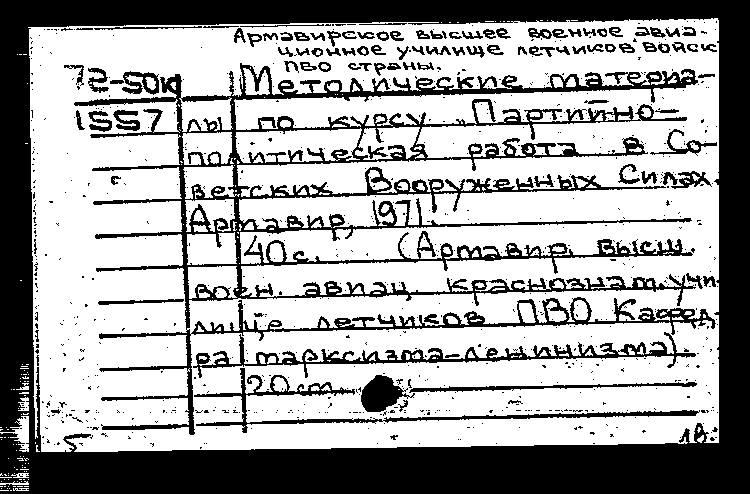 Армавирское высшее военное авиа-
ционное училище летчиков войск
ПВО страны.
72-50к Методические материа-
1557 лы по курсу „Партийно-
политическая работа в Со-
ветских Вооруженных Силах.
Армавир, 1971.
40с. (Армавир. высш.
воен. авиац. краснознам. учи-
лище летчиков ПВО Кафед-
ра марксизма-ленинизма).
20 cm.
5 1в.